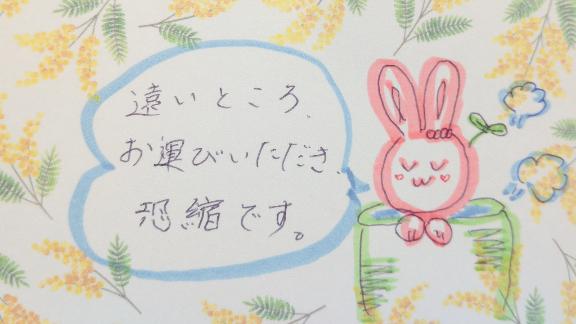 遠いところ、
お運びいただき、
恐縮です。